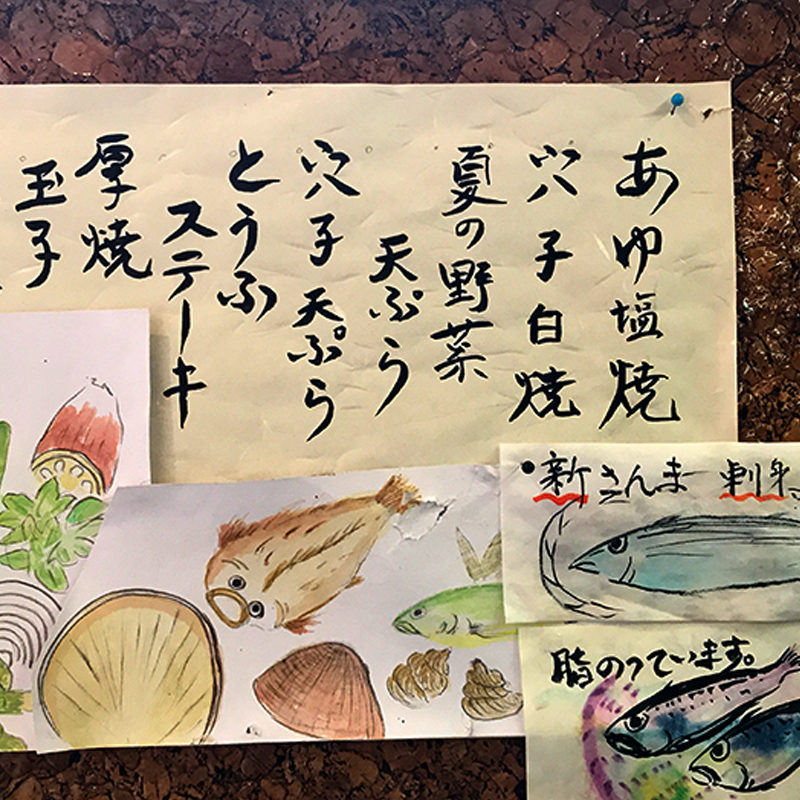 あゆ塩焼
穴子白焼
夏の野菜
天ぷら
穴子天ぷら
とうふ
ステーキ
厚焼
玉子
新さんま 刺身
脂のっています。